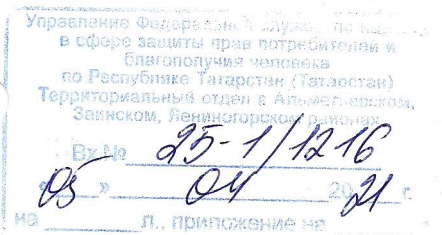 Управление Федеральной службы по надзору
в сфере защиты прав потребителей и
благополучия человека
по Республике Татарстан (Татарстан)
Территориальный отдел в Альметьевском,
Заинском, Лениногорском районах
Вх № 25-1/1216
« 05 » 04 2021 г.
на л., приложение на